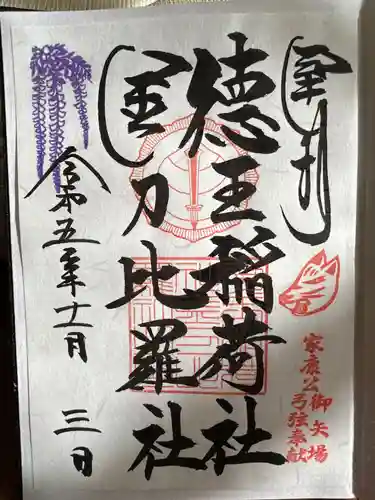 奉拝
徳王稲荷社
金刀比羅社
令和五年十一月三日
家康公御矢場
弓弦奉献